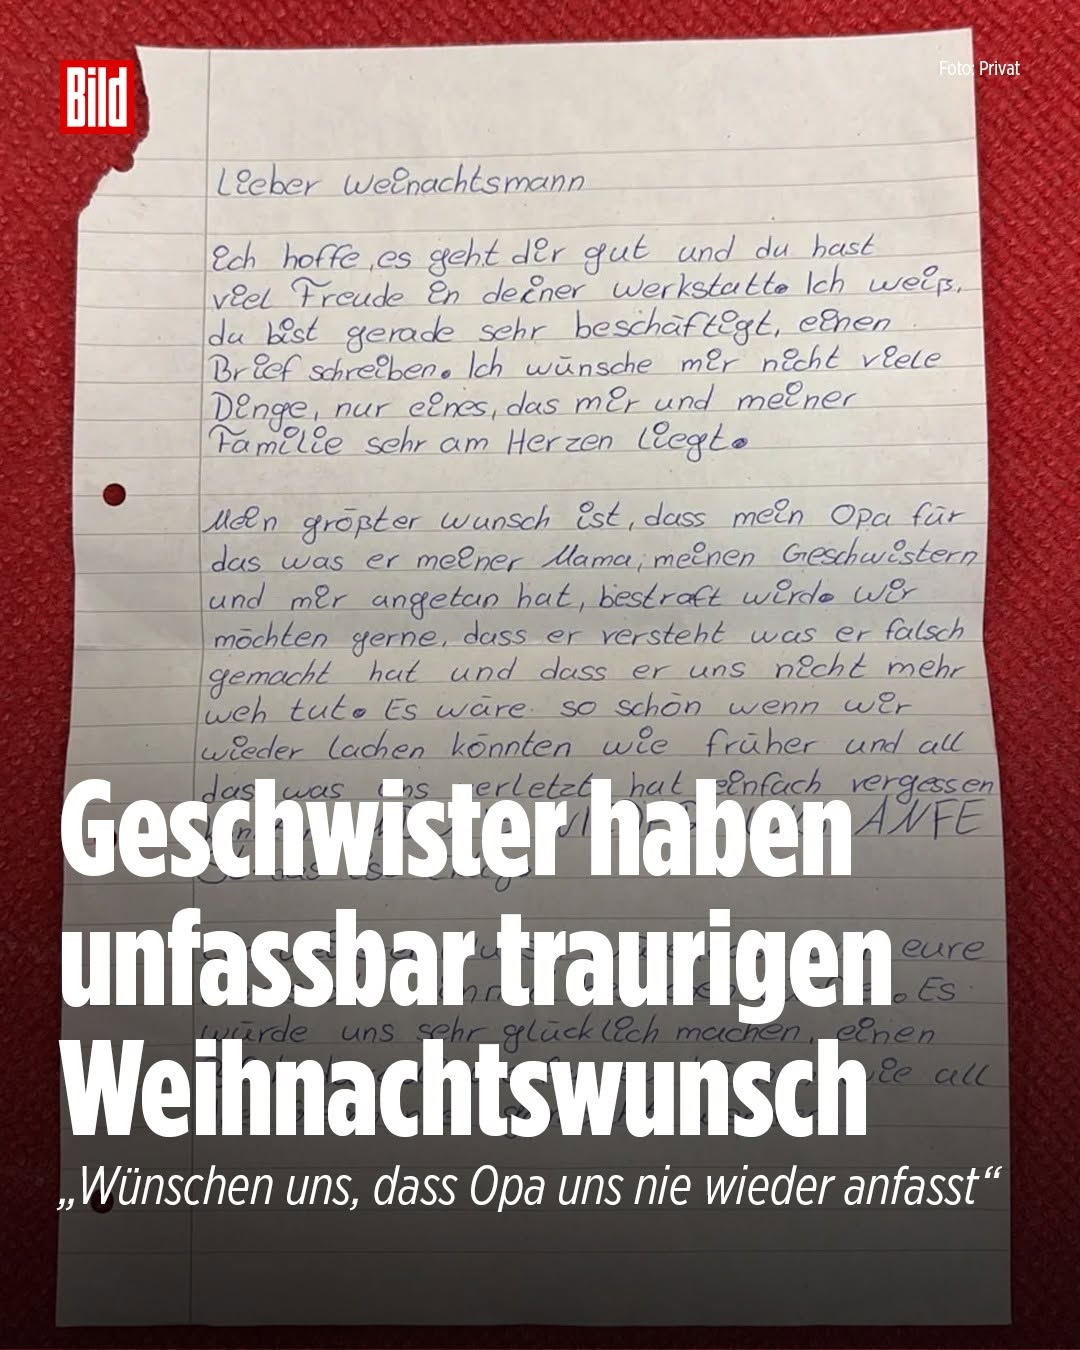 Bild
Foto: Privat
Lieber Weinachtsmann
Ich hoffe, es geht dir gut und du hast
viel Freude in deiner Werkstatt. Ich weiß,
du bist gerade sehr beschäftigt, einen
Brief schreiben. Ich wünsche mir nicht viele
Dinge, nur eines, das mir und meiner
Familie sehr am Herzen liegt.
Mein größter wunsch ist, dass mein Opa für
das was er meiner Mama, meinen Geschwistern
und mir angetan hat, bestraft wird. Wir
möchten gerne, dass er versteht was er falsch
gemacht hat und dass er uns nicht mehr
weh tut. Es wäre so schön wenn wir
wieder lachen könnten wie früher und all
das was uns verletzt hat einfach vergessen
ANFE
eure
. Es
würde uns sehr glücklich machen, einen
wie all
Geschwister haben
unfassbar traurigen
Weihnachtswunsch
„Wünschen uns, dass Opa uns nie wieder anfasst“